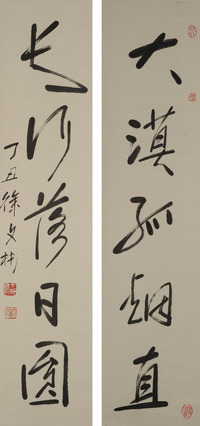 大漠孤烟直
长河落日圆
丁丑徐文彬